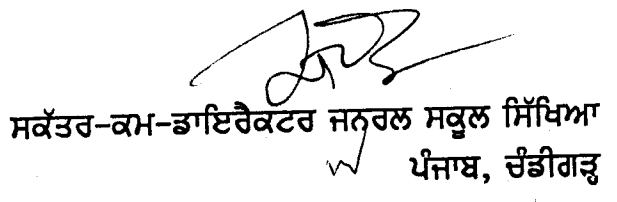 ਸਕੱਤਰ-ਕਮ-ਡਾਇਰੈਕਟਰ ਜਨਰਲ ਸਕੂਲ ਸਿੱਖਿਆ
ਪੰਜਾਬ, ਚੰਡੀਗੜ੍ਹ